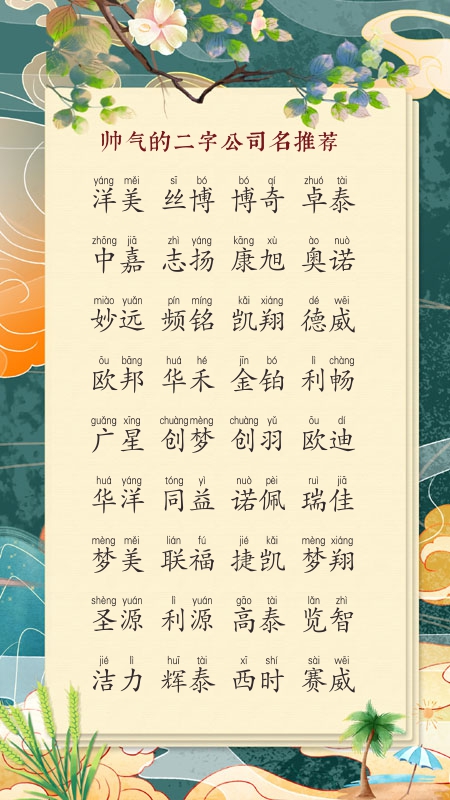 帅气的二字公司名推荐
yáng měi sī bó bó qí zhuó tài
洋美 丝博 博奇 卓泰
zhōng jiā zhì yáng kāng xù ào nuò
中嘉 志扬 康旭 奥诺
miào yuǎn pín míng kǎi xiáng dé wēi
妙远 频铭 凯翔 德威
ōu bāng huá hé jīn bó lì chàng
欧邦 华禾 金铂 利畅
guǎng xīng chuàng mèng chuàng yǔ ōu dí
广星 创梦 创羽 欧迪
huá yáng tóng yì nuò pèi ruì jiā
华洋 同益 诺佩 瑞佳
mèng měi lián fú jié kǎi mèng xiáng
梦美 联福 捷凯 梦翔
shèng yuán lì yuán gāo tài lǎn zhì
圣源 利源 高泰 览智
jié lì huī tài xī shí sài wēi
洁力 辉泰 西时 赛威